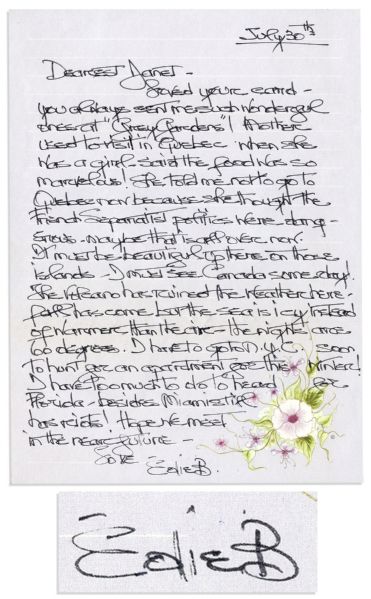 July 30th
Dearest Janet -
Loved your card -
you always sent me such wonderful
ones at "Grey Gardens"! Mother
used to visit in Quebec when she
was a girl - said the food was so
marvelous! She told me not to go to
Quebec now because she thought the
French Separatist politics were dang-
erous - maybe that is all over now.
It must be beautiful up there on those
islands - I must see Canada some day!
The Volcano has ruined the weather here -
Fall has come but the sea is icy instead
of warmer than the air - the nights are
60 degrees. I have to go to N.Y.C. soon
to hunt for an apartment for this winter!
I have too much to do to head for
Florida - besides Miami still
has riots! Hope we meet
in the near future -
Love
Edie B.
Edie B